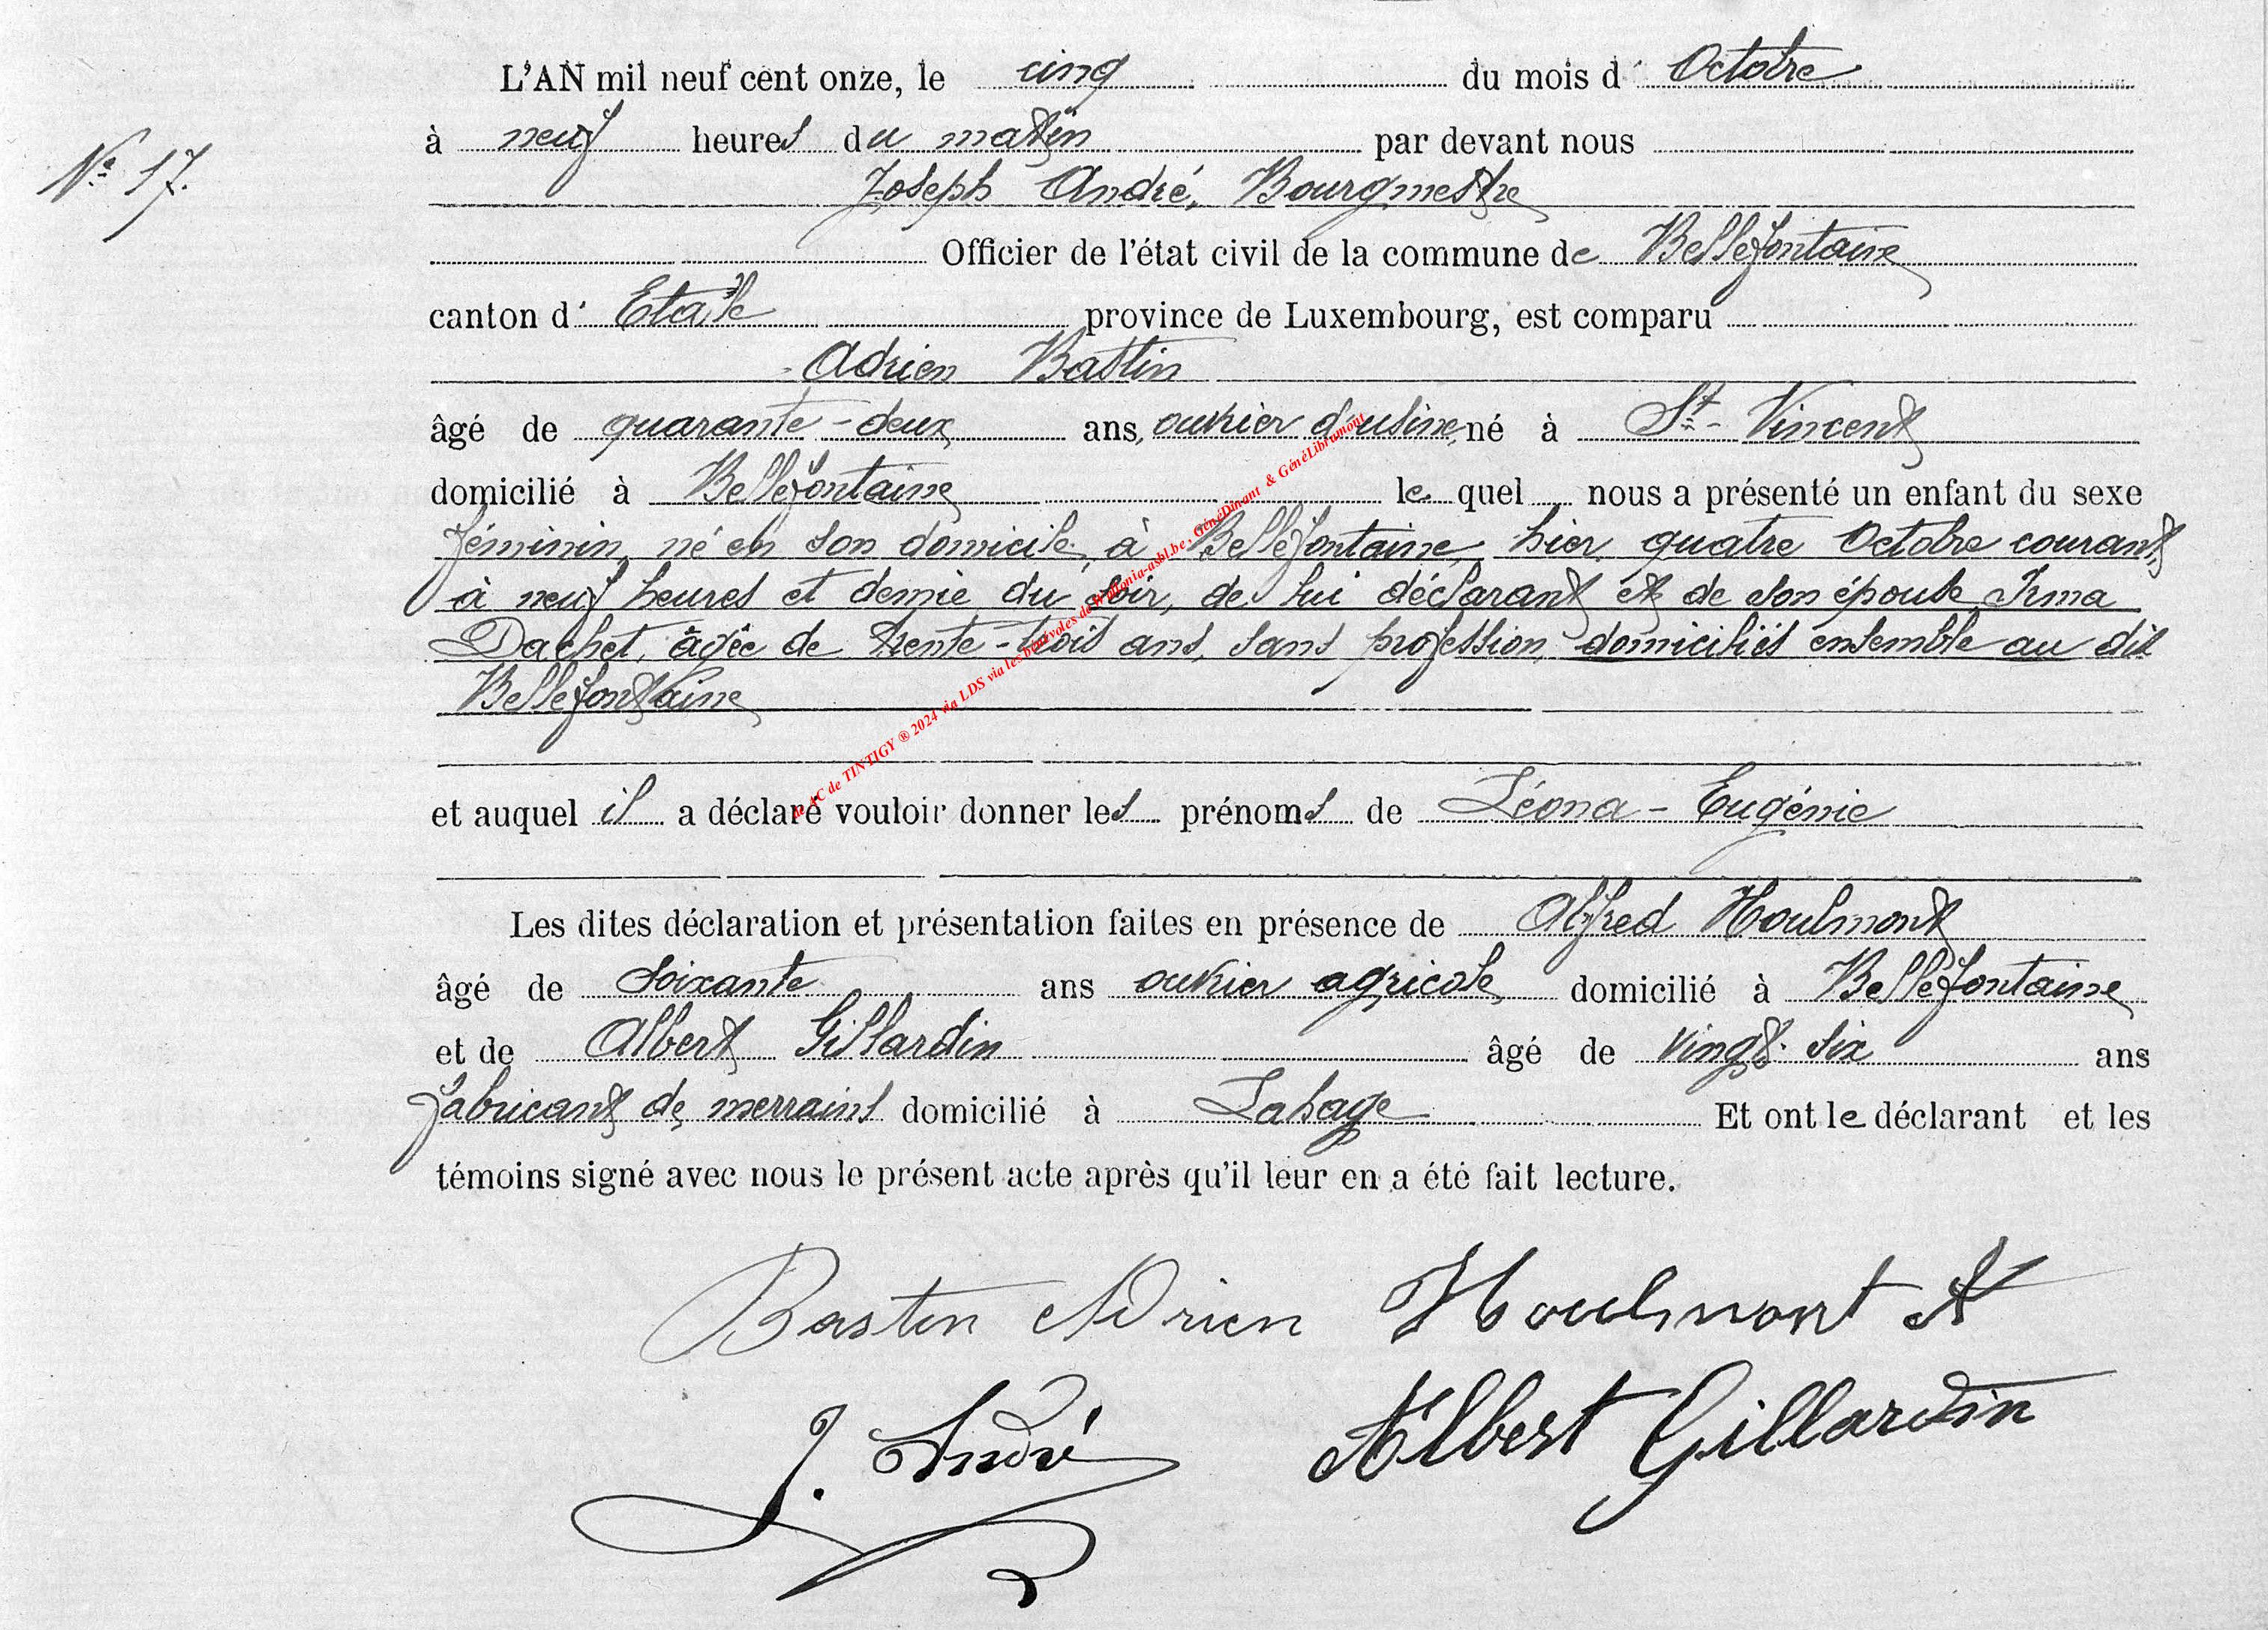 L'AN mil neuf cent onze, le cinq du mois d' Octobre
à neuf heures du matin par devant nous
Nº 17.
Joseph André, Bourgmestre
Officier de l'état civil de la commune de Bellefontaine
canton d' Etalle province de Luxembourg, est comparu
Adrien Bastin
âgé de quarante-deux ans, ouvrier d'usine, né à St-Vincent
domicilié à Bellefontaine le quel nous a présenté un enfant du sexe
féminin, né en son domicile, à Bellefontaine, hier, quatre Octobre courant,
à neuf heures et demie du soir, de lui déclarant et de son épouse Irma
Dachet, âgée de trente-trois ans, sans profession, domiciliés ensemble au dit
Bellefontaine
et auquel il a déclaré vouloir donner les prénoms de Léona-Eugénie
Les dites déclaration et présentation faites en présence de Alfred Houlmont
âgé de soixante ans ouvrier agricole, domicilié à Bellefontaine
et de Albert Gillardin âgé de vingt-six ans
fabricant de merrains domicilié à Lahage Et ont le déclarant et les
témoins signé avec nous le présent acte après qu'il leur en a été fait lecture.
Bastin Adrien Houlmont A
J. André Albert Gillardin
de AC de TINTIGY ® 2024 via LDS via les bénévoles de Wallonia-asbl.be, GénéDinant & GénéLibramont